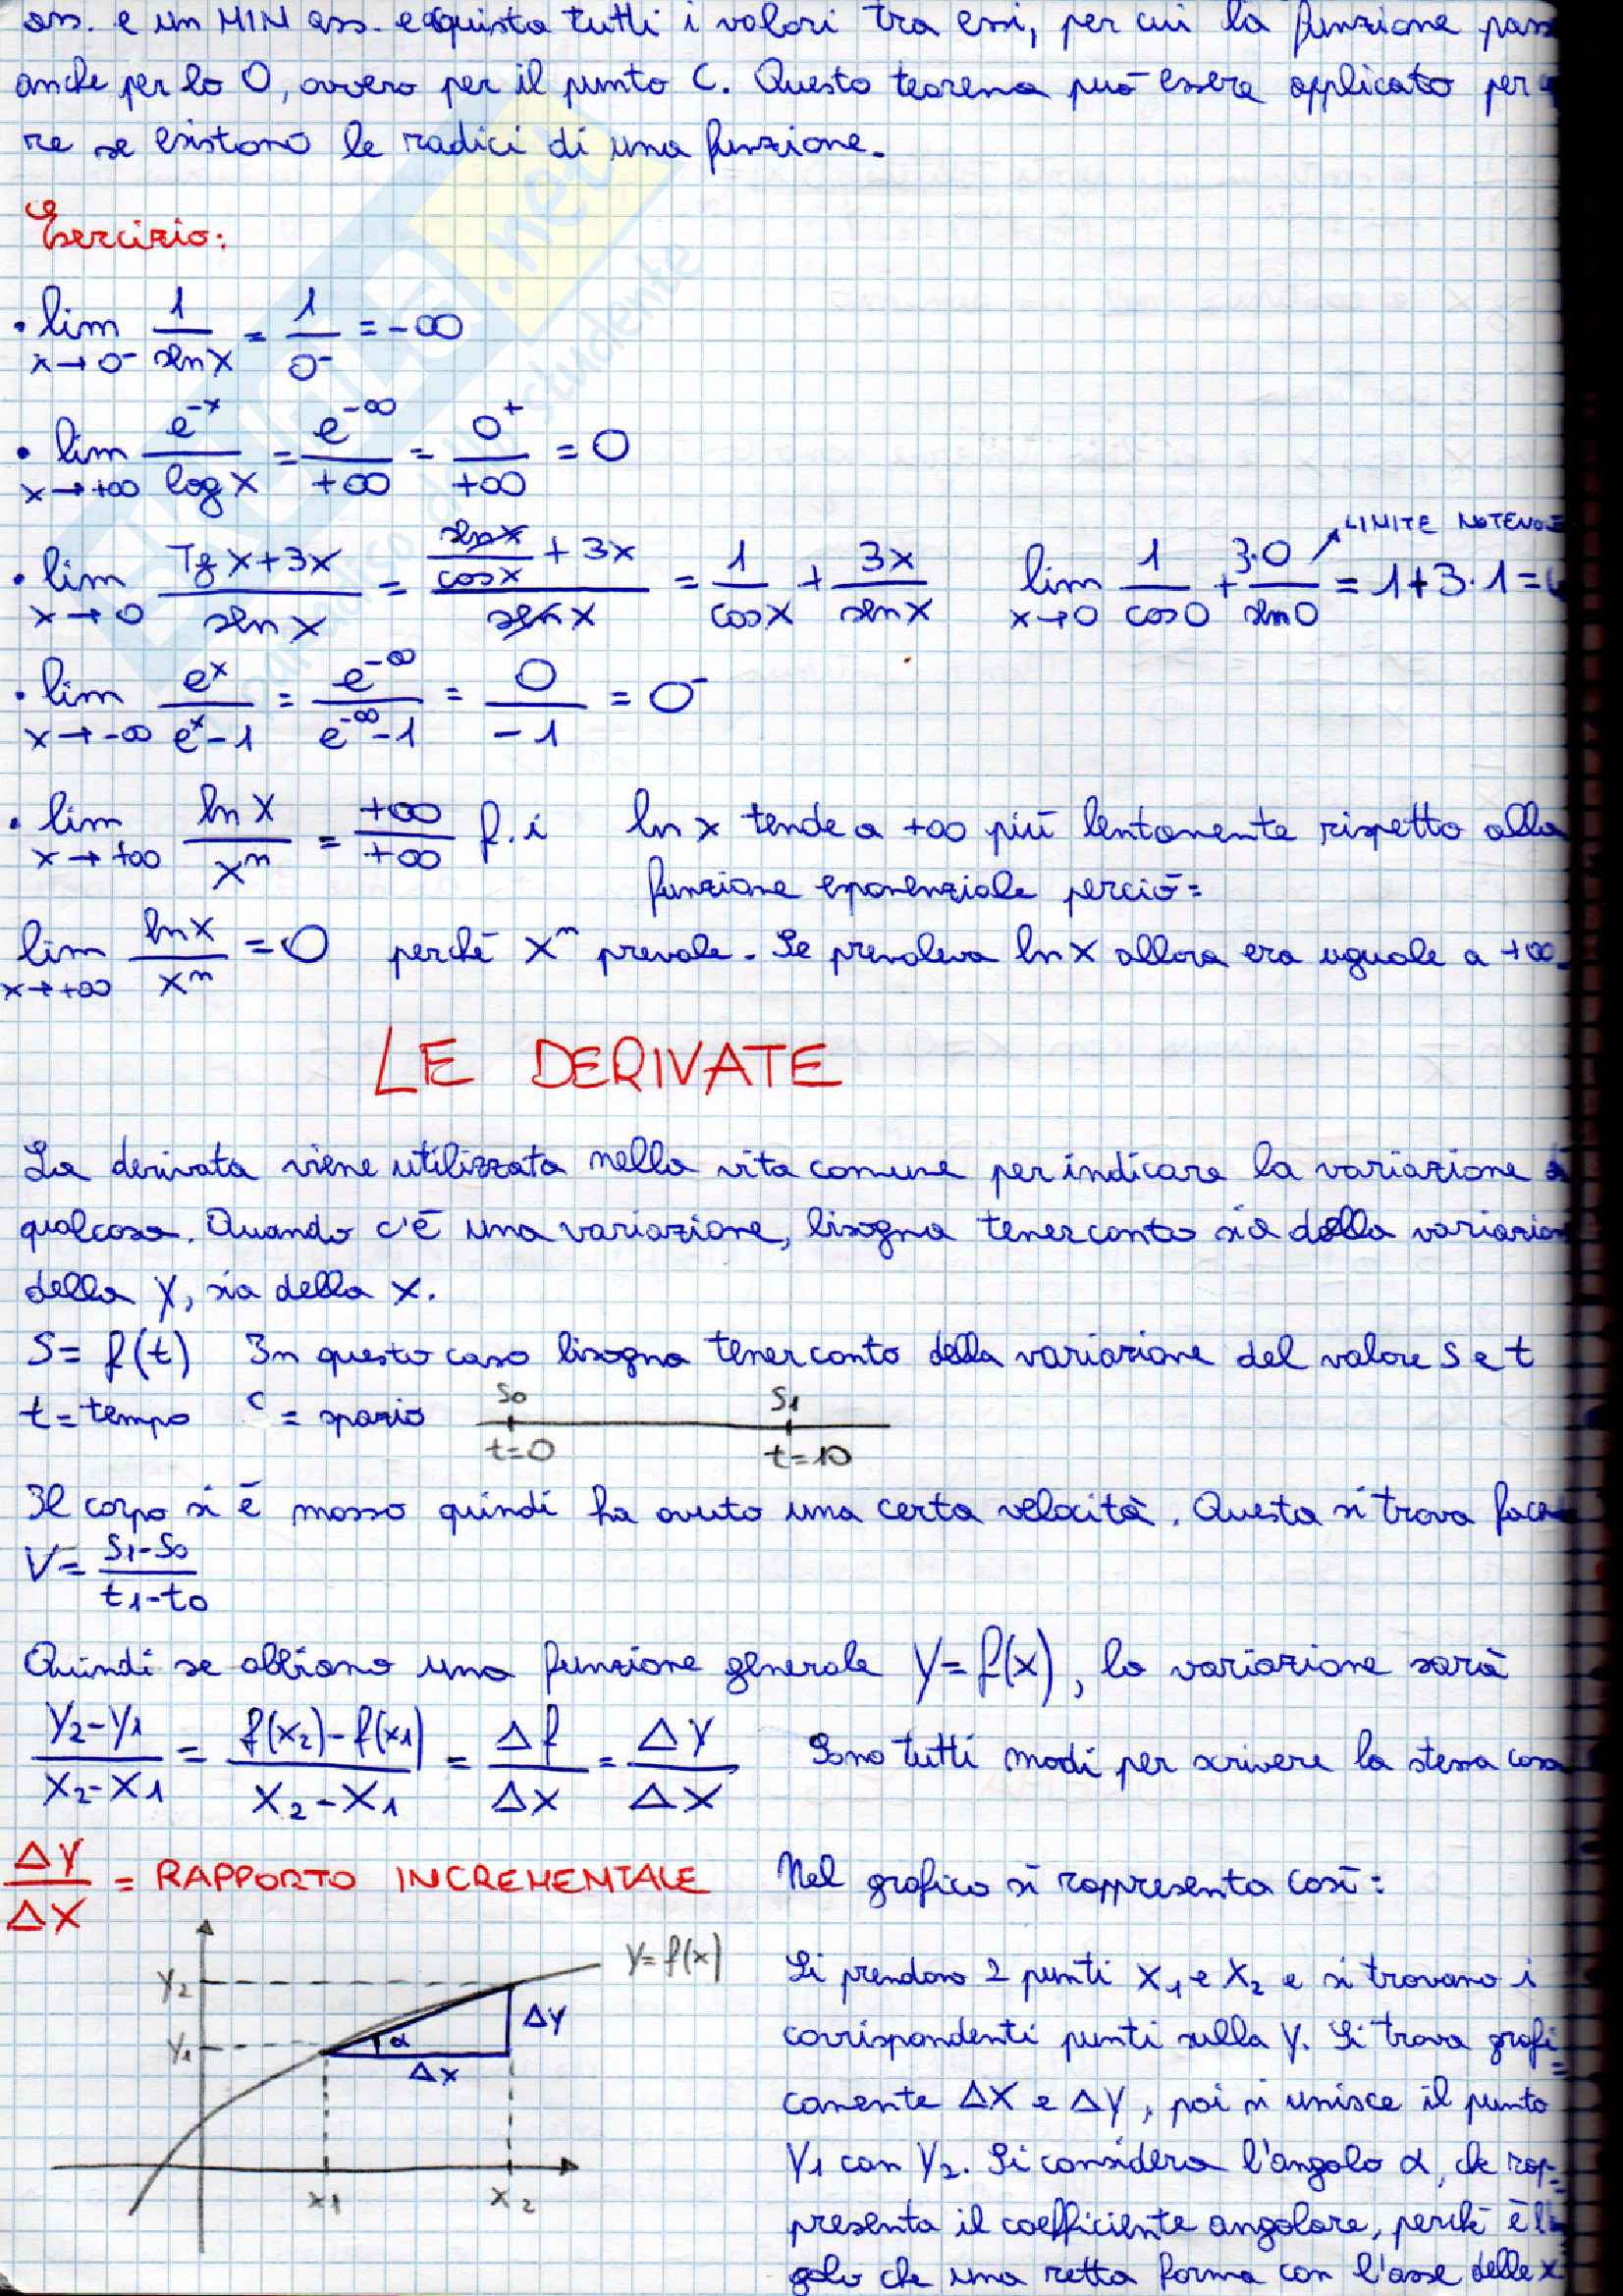 ass. e un MIN ass. e acquista tutti i valori tra essi, per cui la funzione pass
anche per lo 0, ovvero per il punto C. Questo teorema può essere applicato per
re se esistono le radici di una funzione.
Esercizio:
• lim x→0⁻ 1/sen x = 1/0⁻ = -∞
• lim x→+∞ e^-x/log x = e^-∞/+∞ = 0⁺/+∞ = 0
LIMITE NOTEVOLE
• lim x→0 (Tg x+3x)/sen x = (sen x/cos x + 3x)/sen x = 1/cos x + 3x/sen x lim x→0 1/cos0 + 3·0/sen0 = 1+3·1=4
• lim x→-∞ e^x/(e^x-1) = e^-∞/(e^-∞-1) = 0/-1 = 0⁻
• lim x→+∞ ln x/x^n = +∞/+∞ f.i ln x tende a +∞ più lentamente rispetto alla
funzione esponenziale perciò:
lim x→+∞ ln x/x^n = 0 perché x^n prevale. Se prevaleva ln x allora era uguale a +∞.
LE DERIVATE
La derivata viene utilizzata nella vita comune per indicare la variazione di
qualcosa. Quando c'è una variazione, bisogna tener conto sia della variazion
della y, sia della x.
S= f(t) In questo caso bisogna tener conto della variazione del valore S e t
t=tempo S= spazio
S0 S1
t=0 t=10
Il corpo si è mosso quindi ha avuto una certa velocità. Questa si trova face
V= (S1-S0)/(t1-t0)
Quindi se abbiamo una funzione generale y=f(x), la variazione sarà
(y2-y1)/(x2-x1) = (f(x2)-f(x1))/(x2-x1) = Δf/Δx = Δy/Δx Sono tutti modi per scrivere la stessa cosa
Δy/Δx = RAPPORTO INCREMENTALE Nel grafico si rappresenta così:
y=f(x)
y2
y1
Δy
α
Δx
x1 x2
Si prendono 2 punti x1 e x2 e si trovano i
corrispondenti punti sulla y. Si trova grafi=
camente Δx e Δy, poi si unisce il punto
y1 con y2. Si considera l'angolo α, che rap=
presenta il coefficiente angolare, perché è l'
golo che una retta forma con l'asse delle x